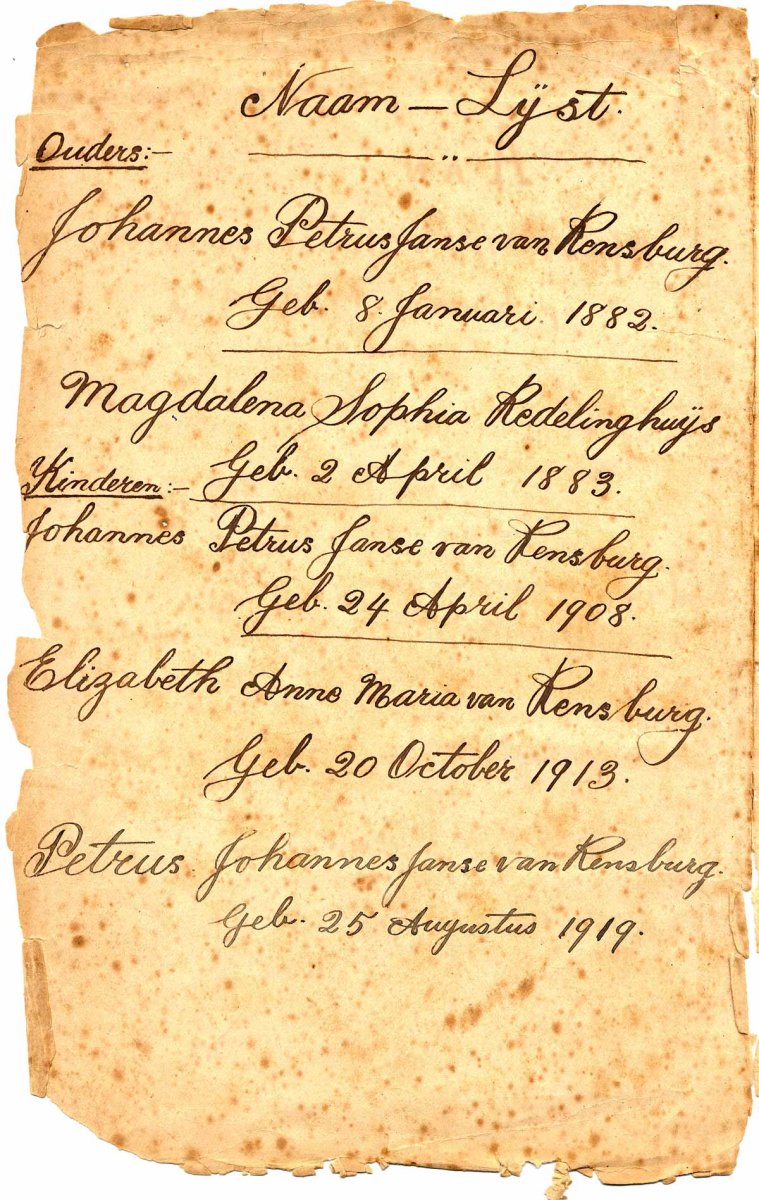 Naam – Lÿst.
Ouders:–
Johannes Petrus Janse van Rensburg.
Geb. 8. Januari 1882.
Magdalena Sophia Redelinghuÿs
Geb. 2 April 1883.
Kinderen:–
Johannes Petrus Janse van Rensburg.
Geb. 24 April 1908.
Elizabeth Anne Maria van Rensburg.
Geb. 20 October 1913.
Petrus Johannes Janse van Rensburg.
Geb. 25 Augustus 1919.